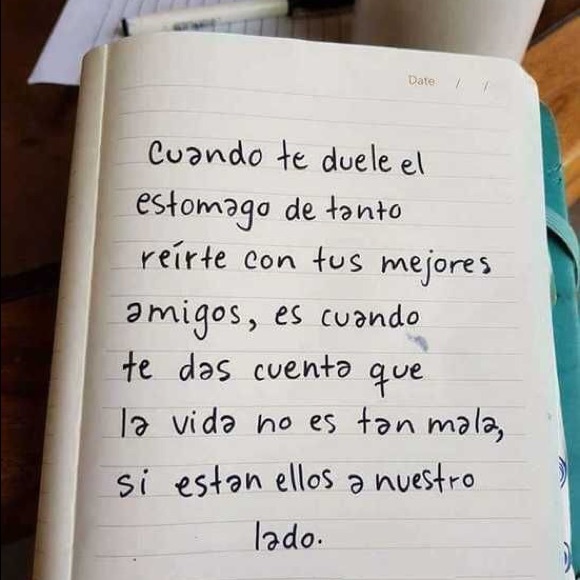 Date / /
Cuando te duele el
estomago de tanto
reírte con tus mejores
amigos, es cuando
te das cuenta que
la vida no es tan mala,
si estan ellos a nuestro
lado.